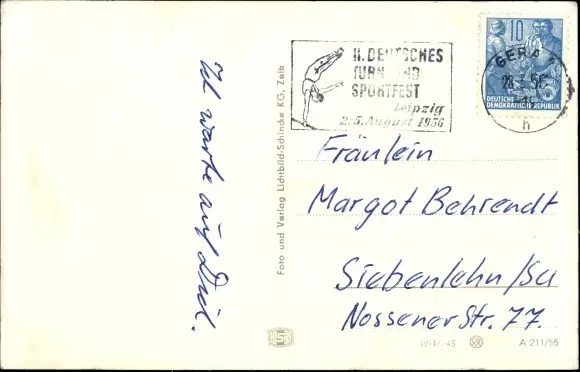 Ich warte auf Dich.
Foto und Verlag Lichtbild-Schincke KG, Zeitz
II. DEUTSCHES
TURN- UND
SPORTFEST
Leipzig
2.-5. August 1956
10
DEUTSCHE
DEMOKRATISCHE REPUBLIK
GERA 1
h
Fräulein
Margot Behrendt
Siebenlehn/Sa
Nossener Str. 77.
A 211/55